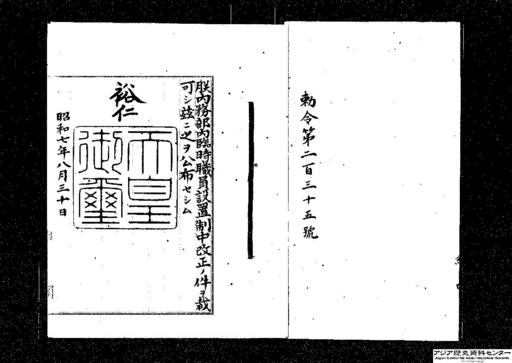 勅令第二百三十五號
朕內務部內臨時職員設置制中改正ノ件ヲ裁
可シ茲ニ之ヲ公布セシム
裕仁
天皇
御璽
昭和七年八月三十日
アジア歴史資料センター
Japan Center for Asian Historical Records